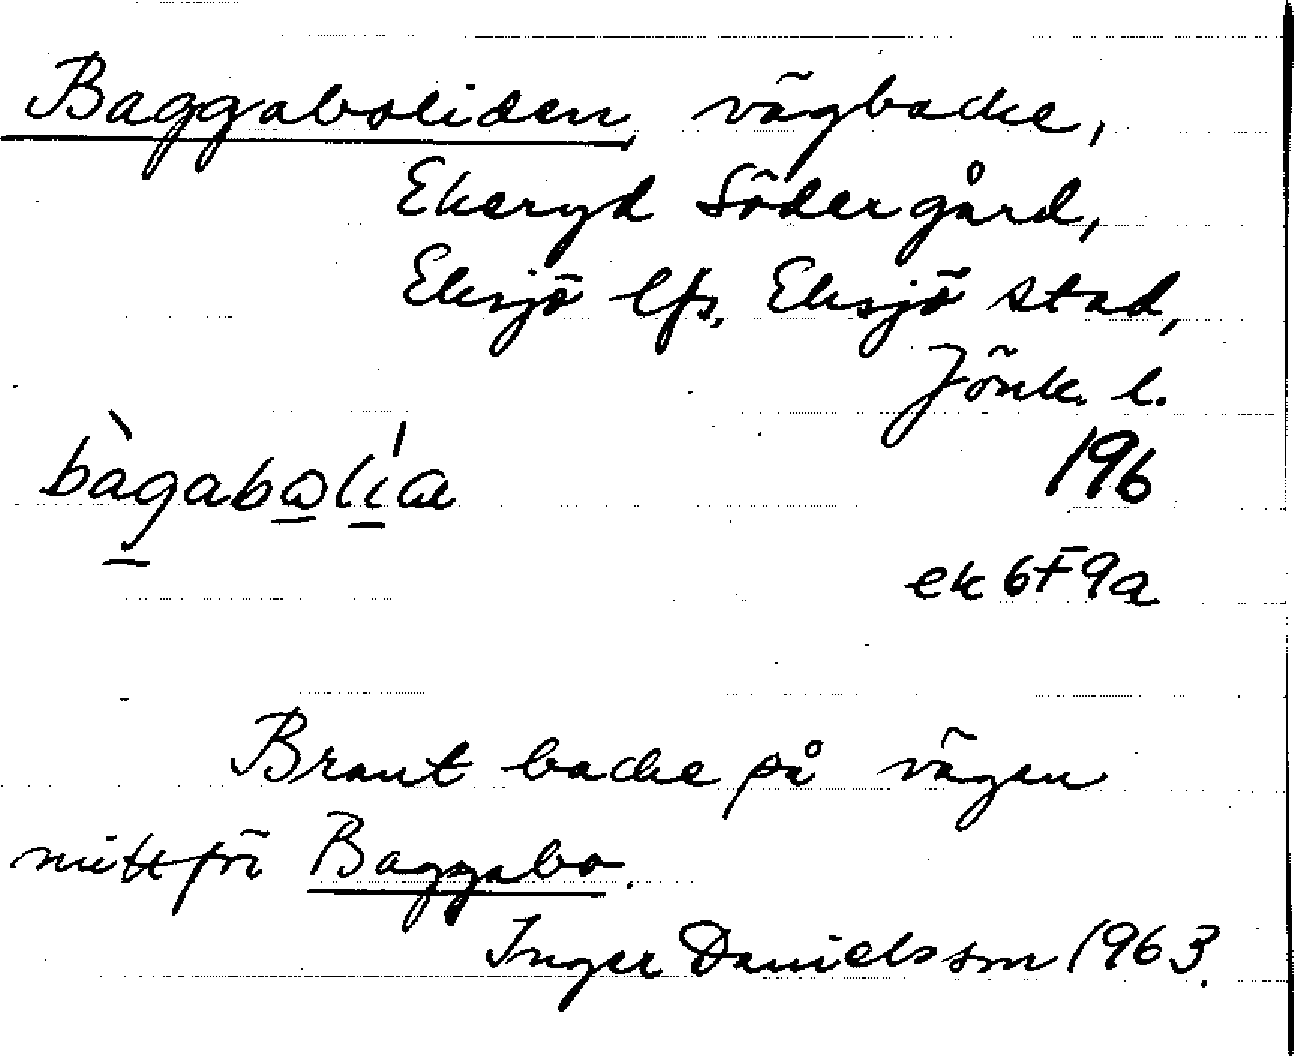 Baggaboliden, vägbacke,
Ekeryd Södergård,
Eksjö lfs, Eksjö stad,
Jönk. l.
196
ek 6F9a
Brant backe på vägen
mitt för Baggabo.
Inger Danielsson 1963.